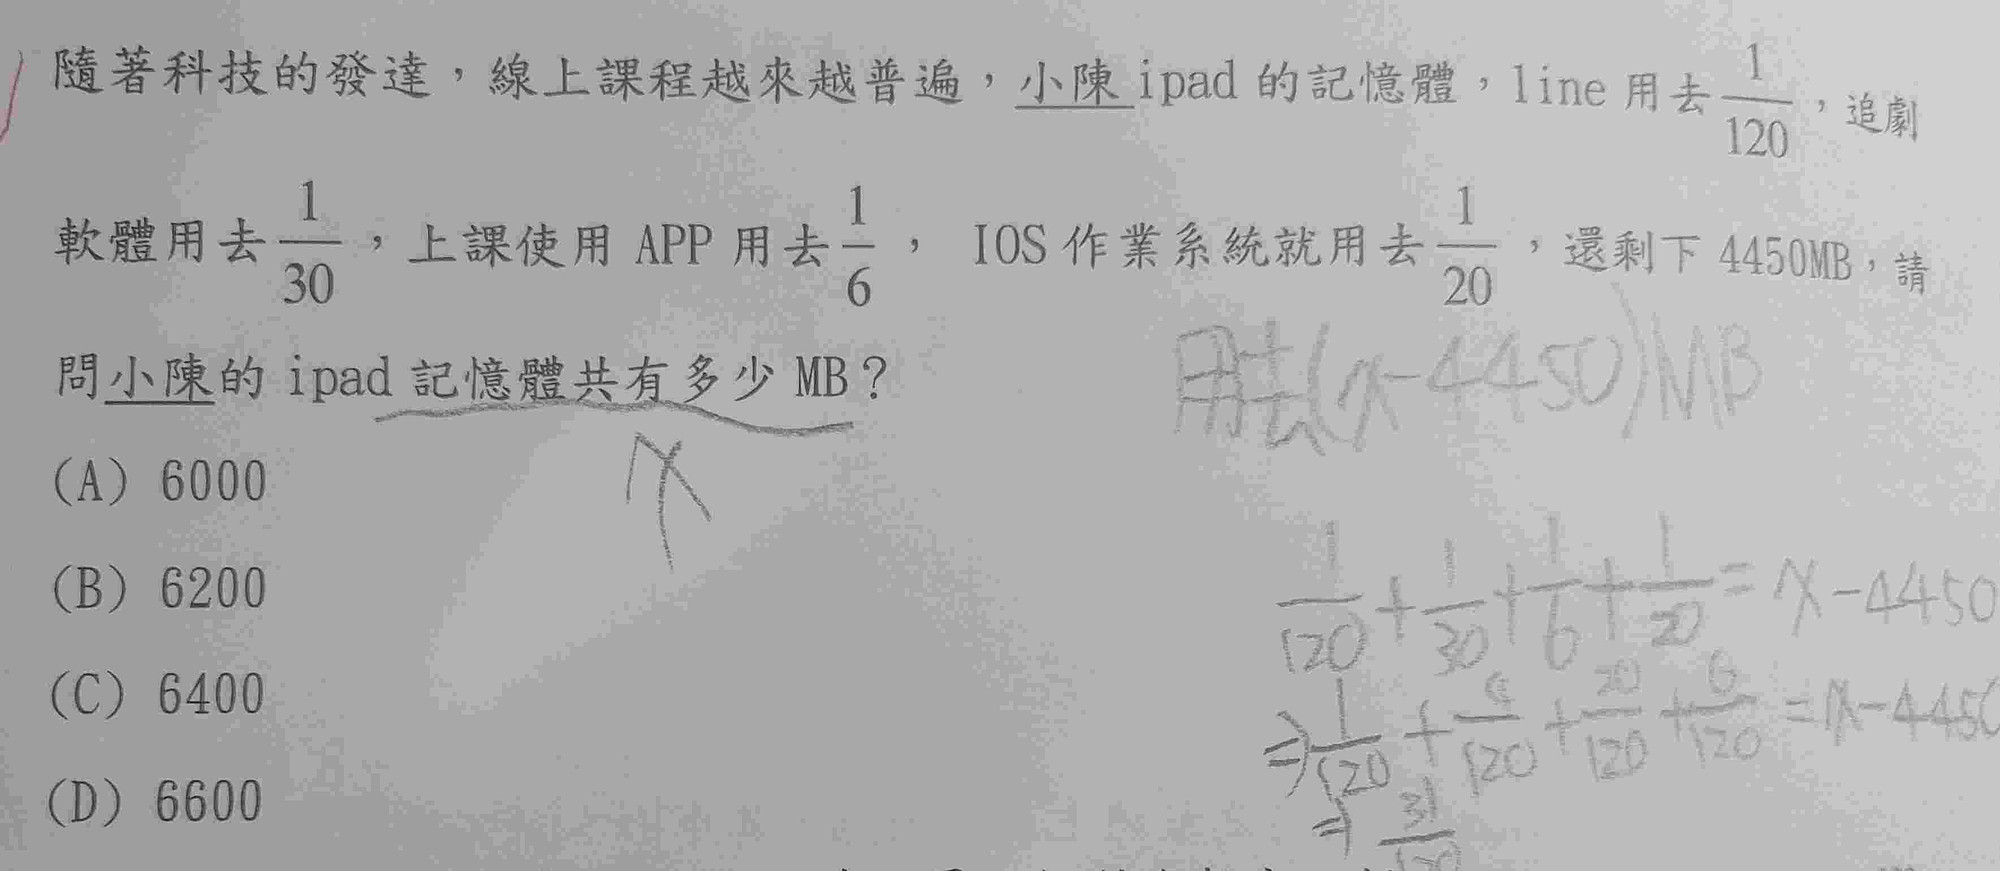 隨著科技的發達，線上課程越來越普遍，小陳 ipad 的記憶體，line 用去 1/120，追劇
軟體用去 1/30，上課使用 APP 用去 1/6， IOS 作業系統就用去 1/20，還剩下 4450MB，請
問小陳的 ipad 記憶體共有多少 MB？
x
用去(x-4450)MB
(A) 6000
(B) 6200
(C) 6400
(D) 6600
1/120 + 1/30 + 1/6 + 1/20 = x-4450
⇒ 1/120 + 4/120 + 20/120 + 6/120 = x-4450
⇒ 31/120